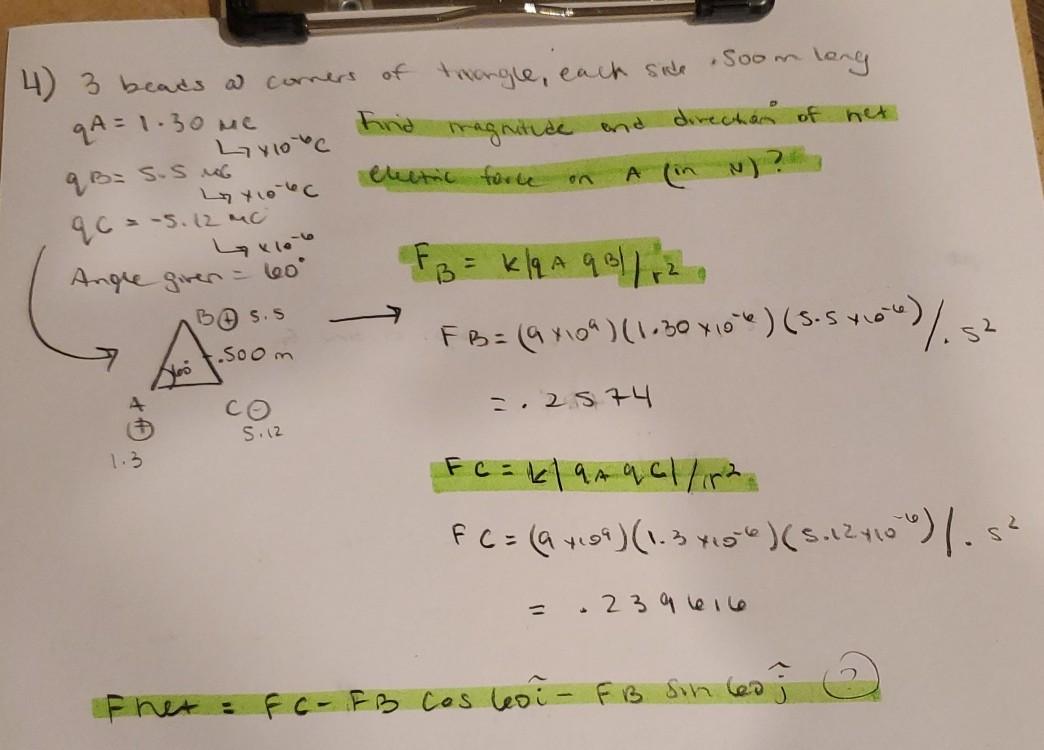 4) 3 beads @ corners of triangle, each side .500 m long
qA = 1.30 μC
↳ x10⁻⁶C
qB = 5.5 μC
↳ x10⁻⁶C
qC = -5.12 μC
↳ x10⁻⁶
Angle given = 60°
Find magnitude and direction of net
electric force on A (in N)?
B ⊕ 5.5
.500 m
60°
A
⊕
1.3
C ⊖
5.12
F_B = k|qA qB|/r².
FB = (9x10⁹)(1.30 x10⁻⁶)(5.5 x10⁻⁶)/.5²
= .2574
FC = k|qA qC|/r².
FC = (9x10⁹)(1.3 x10⁻⁶)(5.12x10⁻⁶)/.5²
= .239616
Fnet = FC - FB cos 60 î - FB sin 60 ĵ (?)